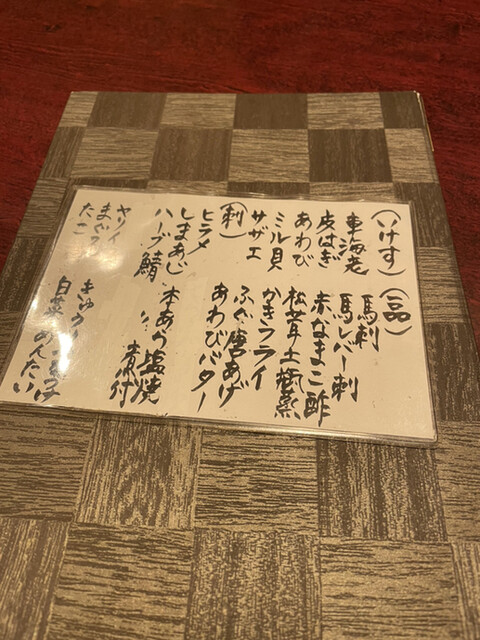 (いけす)
車海老
皮はぎ
あわび
ミル貝
サザエ
(刺)
ヒラメ
しまあじ
ハーブ鯖
ヤリイ
まぐろ
たこ
(一品)
馬刺
馬レバー刺
赤なまこ酢
松茸土瓶蒸
かきフライ
ふぐ唐あげ
あわびバター
本あら塩焼
〃 煮付
きゅうり
白菜 めんたい